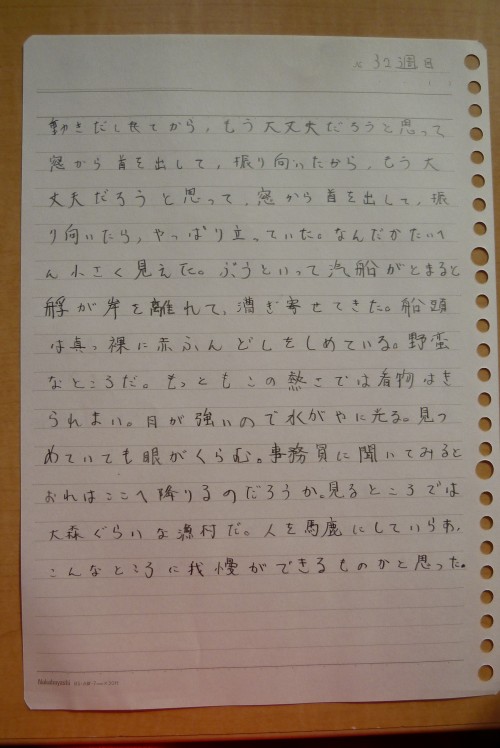 × 32週目
動きだしたてから、もう大丈夫だろうと思って
窓から首を出して、振り向いたから、もう大
丈夫だろうと思って、窓から首を出して、振
り向いたら、やっぱり立っていた。なんだかたいへ
ん小さく見えた。ぷうといって汽船がとまると
艀が岸を離れて、漕ぎ寄せてきた。船頭
は真っ裸に赤ふんどしをしめている。野蛮
なところだ。もっともこの熱さでは着物はき
られまい。日が強いので水がやに光る。見つ
めていても眼がくらむ。事務員に聞いてみると
おれはここへ降りるのだろうか。見るところでは
大森ぐらいな漁村だ。人を馬鹿にしていらあ、
こんなところに我慢ができるものかと思った。
Nakabayashi